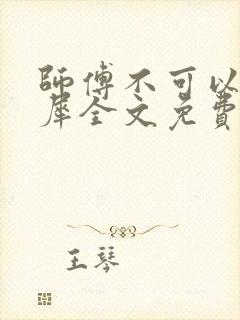 師傅不可以
犀全文免費
王琴